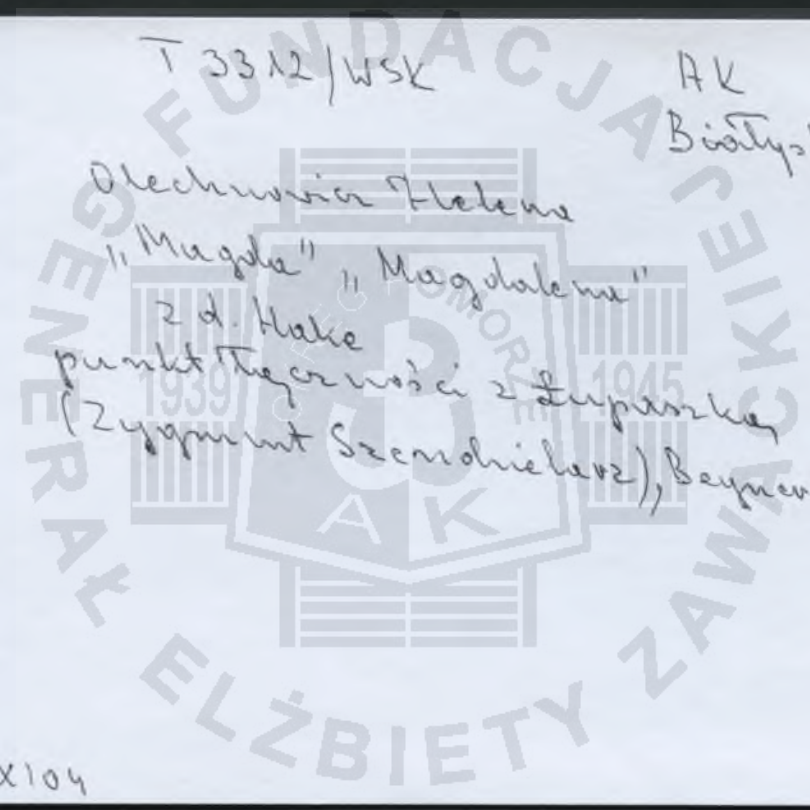 T 3312/WSK
AK
Białys
Olechnowicz Helena
"Magda" "Magdalena"
z d. Hake
punkt łączności z Łupaszką
(Zygmunt Szendzielarz), Beyner
X104
FUNDACJA
GENERAŁ ELŻBIETY ZAWACKIEJ
OKRĘG POMORZE
1939
1945
AK